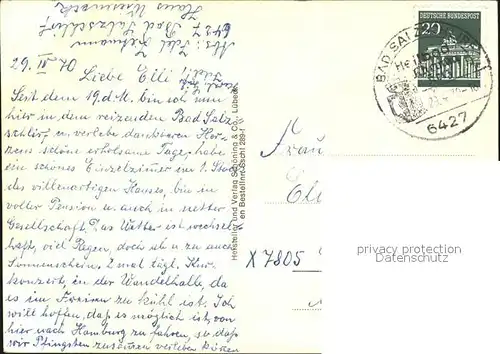 Abs: Idel Lehmann
6427 Bad Salzschlirf
Haus
29. IV. 70
Liebe Elli!
Seit dem 19. d. M. bin ich nun
hier in dem reizenden Bad Salz-
schlirf, u. verlebe dankbaren Her-
zens schöne erholsame Tage, habe
ein schönes Einzelzimmer im 1. Stock
des villenartigen Hauses, bin in
voller Pension u. auch in netter
Gesellschaft. Das Wetter ist wechsel-
haft, viel Regen, doch ab u. zu auch
Sonnenschein. 2 mal tägl. Kur-
konzert, in der Wandelhalle, da
es im Freien zu kühl ist. Ich
will hoffen, daß es möglich ist, von
hier nach Hamburg zu fahren, so daß
wir Pfingsten zusammen verleben können
Hersteller und Verlag Schöning & Co., Lübeck
en Bestellnr. Ssch1 289-f
DEUTSCHE BUNDESPOST
20
BAD SALZSCHLIRF
6427
Frau
Elli
X 7805
privacy protection
Datenschutz